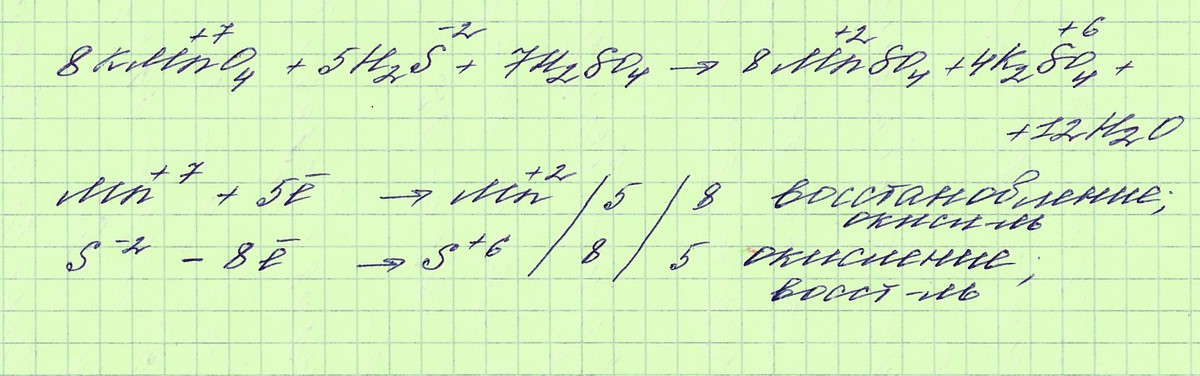 8KMn⁺⁷O₄ + 5H₂S⁻² + 7H₂SO₄ → 8Mn⁺²SO₄ + 4K₂S⁺⁶O₄ +
+12H₂O
Mn⁺⁷ + 5ē → Mn⁺² / 5 / 8 восстановление;
окисл-ль
S⁻² - 8ē → S⁺⁶ / 8 / 5 окисление;
восст-ль